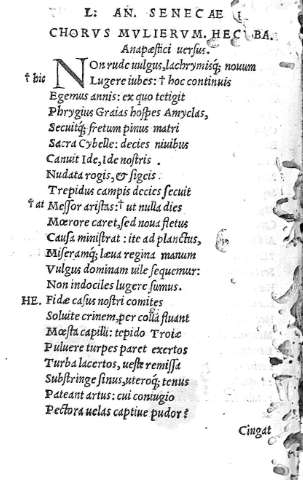 L: AN. SENECAE
CHORVS MVLIERVM. HECVBA.
Anapæstici uersus.
NOn rude uulgus, lachrymisq; nouum
† hic Lugere iubes: † hoc continuis
Egemus annis: ex quo tetigit
Phrygius Graias hospes Amyclas,
Secuitq; fretum pinus matri
Sacra Cybelle: decies niuibus
Canuit Ide, Ide nostris
Nudata rogis, & sigeis
Trepidus campis decies secuit
† at Messor aristas: † ut nulla dies
Mœrore caret, sed noua fletus
Causa ministrat: ite ad planctus,
Miseramq; læua regina manum
Vulgus dominam uile sequemur:
Non indociles lugere sumus.
HE. Fidæ casus nostri comites
Soluite crinem, per colla fluant
Mœsta capilli: tepido Troiæ
Puluere turpes paret exertos
Turba lacertos, ueste remissa
Substringe sinus, uteroq; tenus
Pateant artus: cui coniugio
Pectora uelas captiue pudor?
Cingat